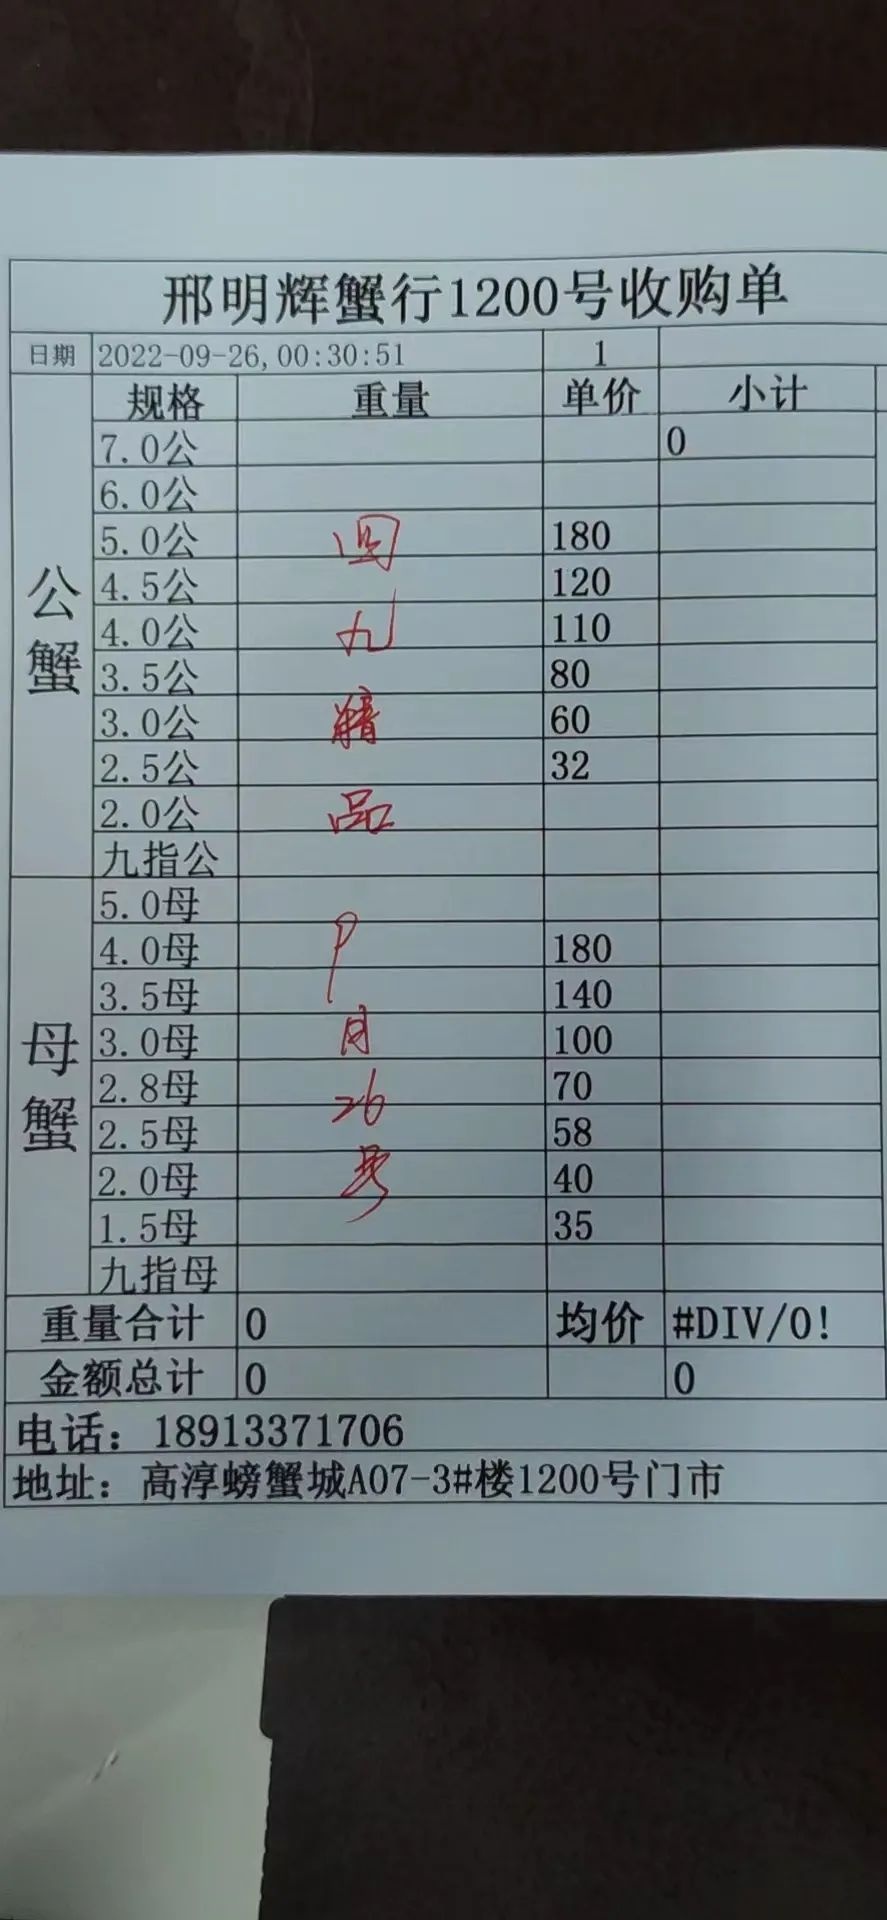 邢明辉蟹行1200号收购单
日期 2022-09-26,00:30:51 1
规格 重量 单价 小计
公蟹
7.0公 0
6.0公
5.0公 180
4.5公 120
4.0公 九 110
3.5公 80
3.0公 精 60
2.5公 32
2.0公 品
九指公
母蟹
5.0母
4.0母 180
3.5母 140
3.0母 月 100
2.8母 26 70
2.5母 58
2.0母 号 40
1.5母 35
九指母
重量合计 0 均价 #DIV/0!
金额总计 0 0
电话：18913371706
地址：高淳螃蟹城A07-3#楼1200号门市